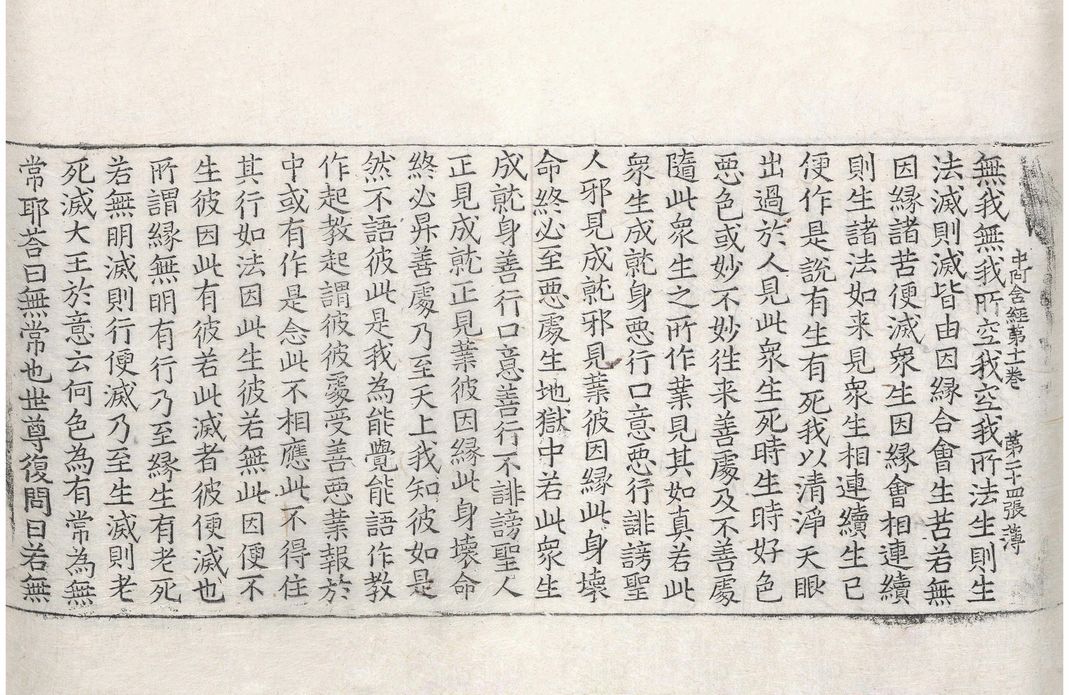 中阿含經第十一卷　第二十四張　薄
無我無我所空我空我所法生則生
法滅則滅皆由因緣合會生苦若無
因緣諸苦便滅衆生因緣會相連續
則生諸法如来見衆生相連續生已
便作是說有生有死我以清淨天眼
出過於人見此衆生死時生時好色
惡色或妙不妙往来善處及不善處
隨此衆生之所作業見其如真若此
衆生成就身惡行口意惡行誹謗聖
人邪見成就邪見業彼因緣此身壞
命終必至惡處生地獄中若此衆生
成就身善行口意善行不誹謗聖人
正見成就正見業彼因緣此身壞命
終必昇善處乃至天上我知彼如是
然不語彼此是我為能覺能語作教
作起教起謂彼彼處受善惡業報於
中或有作是念此不相應此不得住
其行如法因此生彼若無此因便不
生彼因此有彼若此滅者彼便滅也
所謂緣無明有行乃至緣生有老死
若無明滅則行便滅乃至生滅則老
死滅大王於意云何色為有常為無
常耶荅曰無常也世尊復問曰若無